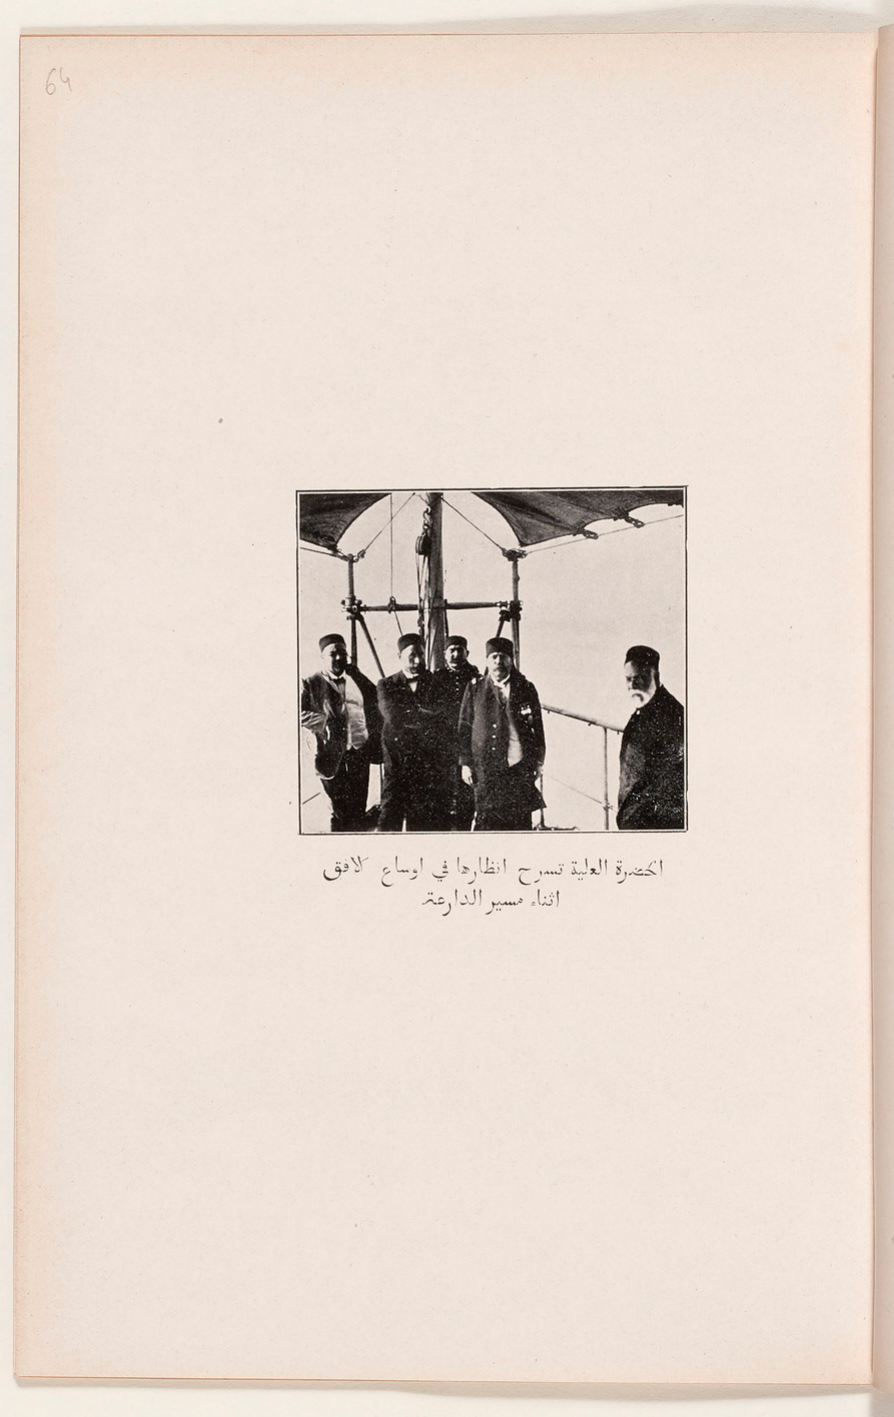 64
الحضرة العلية تسرح انظارها في اوساع الافق
اثناء مسير الدارعة